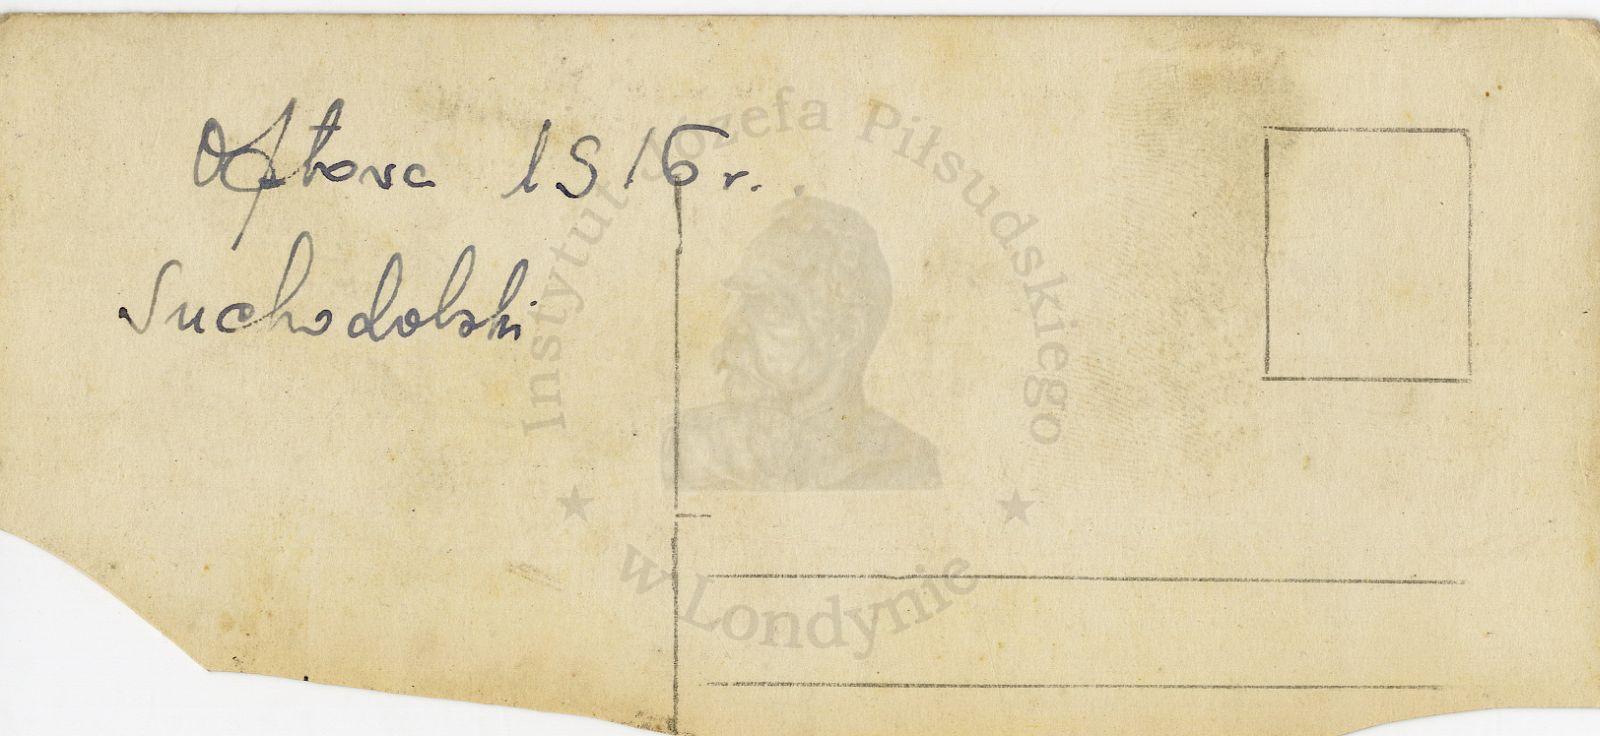 1916 r.
Suchodolski
Instytut Józefa Piłsudskiego
w Londynie